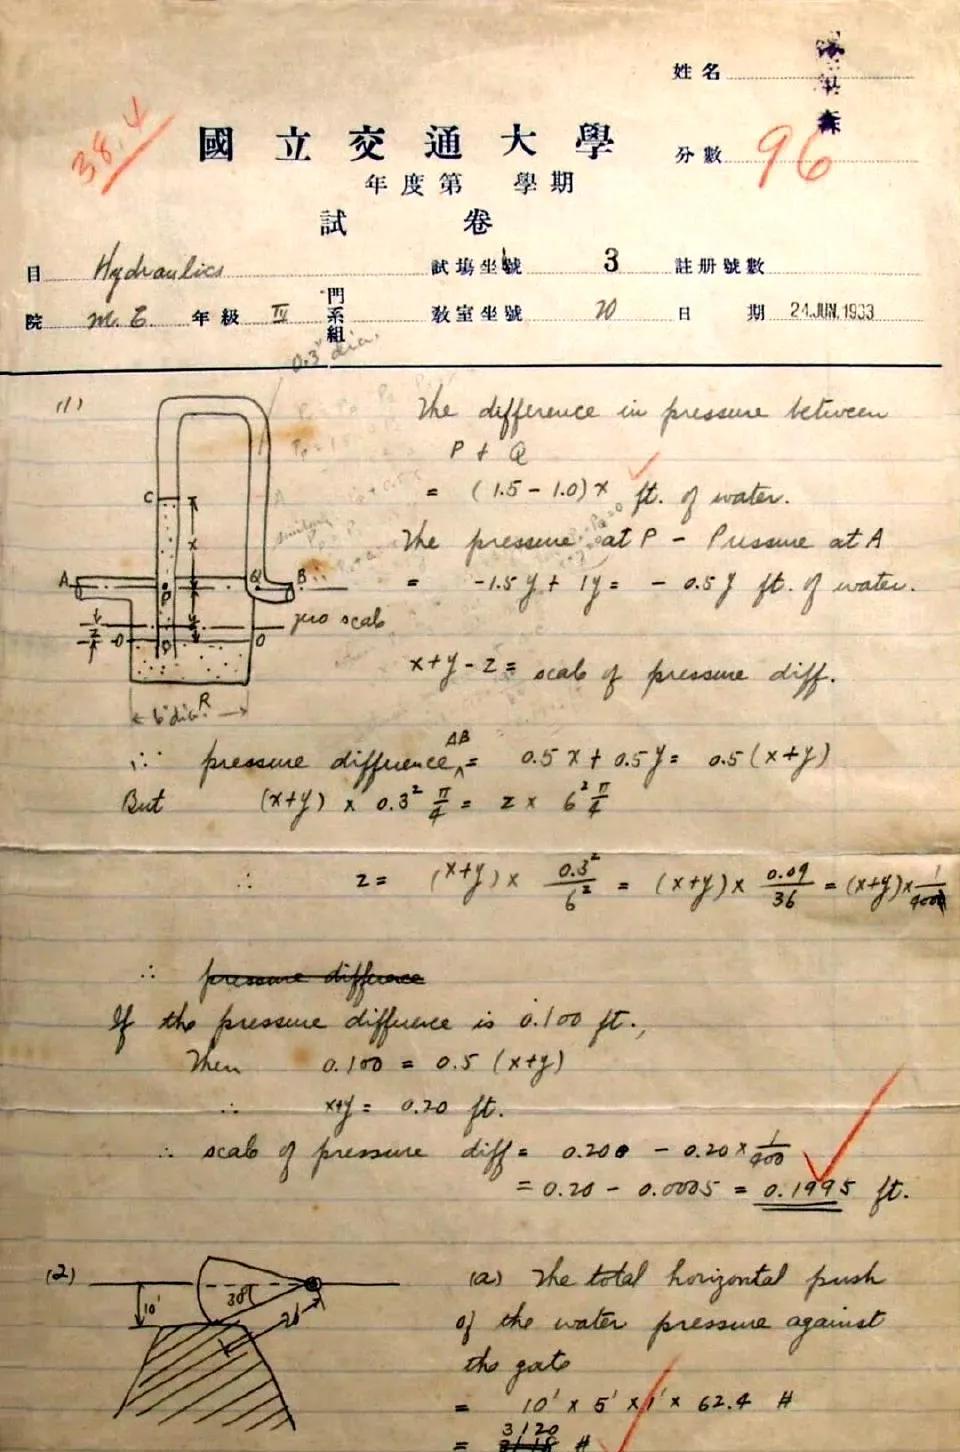 姓名
38.4
國立交通大學
分數 96
年度第 學期
試卷
目 Hydraulics 試場坐號 3 註册號數
院 M.E. 年級 IV 門系組 教室坐號 20 日期 24.JUN.1933
0.3" dia.
(1)
The difference in pressure between
P + Q
= (1.5 - 1.0) x ft. of water.
C
x
The pressure at P - Pressure at A
A P Q B
= -1.5 y + 1y = - 0.5 y ft. of water.
y
zero scale
z O O
x+y-z = scale of pressure diff.
R
6" dia.
∴ pressure difference AB = 0.5 x + 0.5 y = 0.5 (x+y)
But (x+y) x 0.3² π/4 = z x 6² π/4
∴ z = (x+y) x 0.3²/6² = (x+y) x 0.09/36 = (x+y) x 1/400
∴ pressure difference
If the pressure difference is 0.100 ft.,
Then 0.100 = 0.5 (x+y)
∴ x+y = 0.20 ft.
∴ scale of pressure diff = 0.200 - 0.20 x 1/400
= 0.20 - 0.0005 = 0.1995 ft.
(2)
10' 30° 20'
(a) The total horizontal push
of the water pressure against
the gate
= 10' x 5' x 1' x 62.4 #
3120
= #